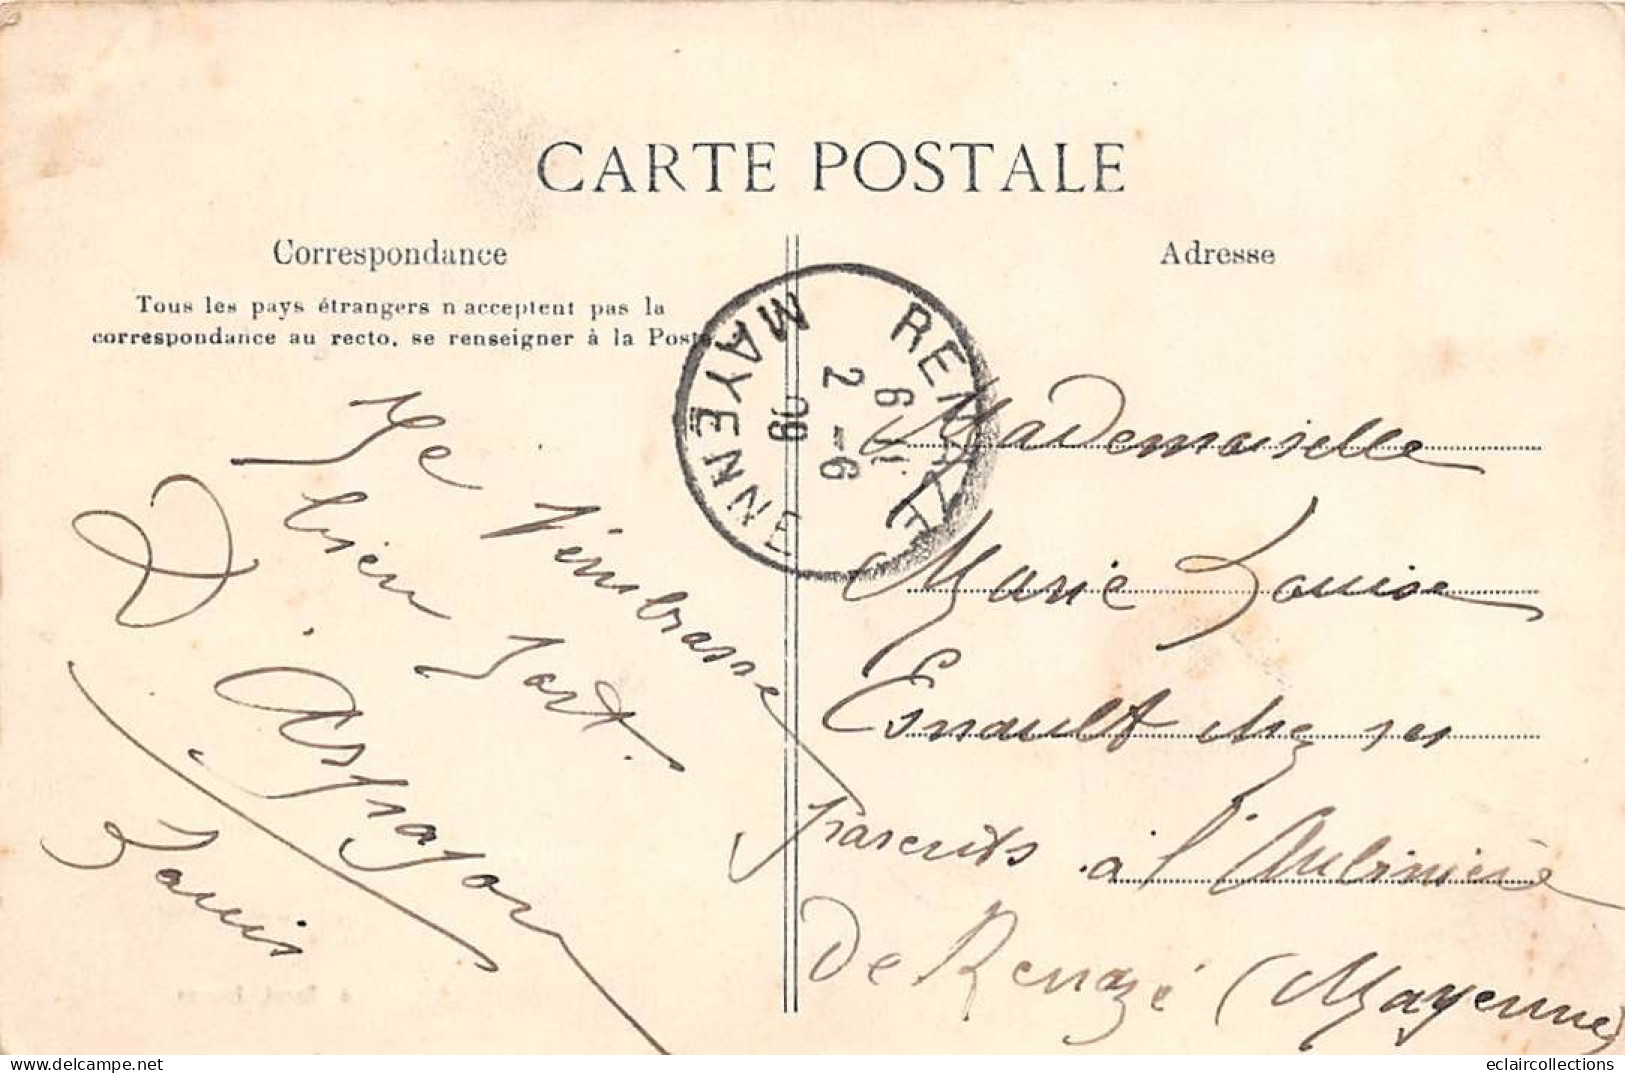 CARTE POSTALE
Correspondance
Tous les pays étrangers n'acceptent pas la
correspondance au recto, se renseigner à la Poste
Je t'embrasse
bien fort.
Louis
RENAZÉ
6
2 - 6
09
MAYENNE
Adresse
Mademoiselle
Marie Louise
Esnault chez ses
parents à l'Aubinière
De Renazé (Mayenne)
eclaircollections